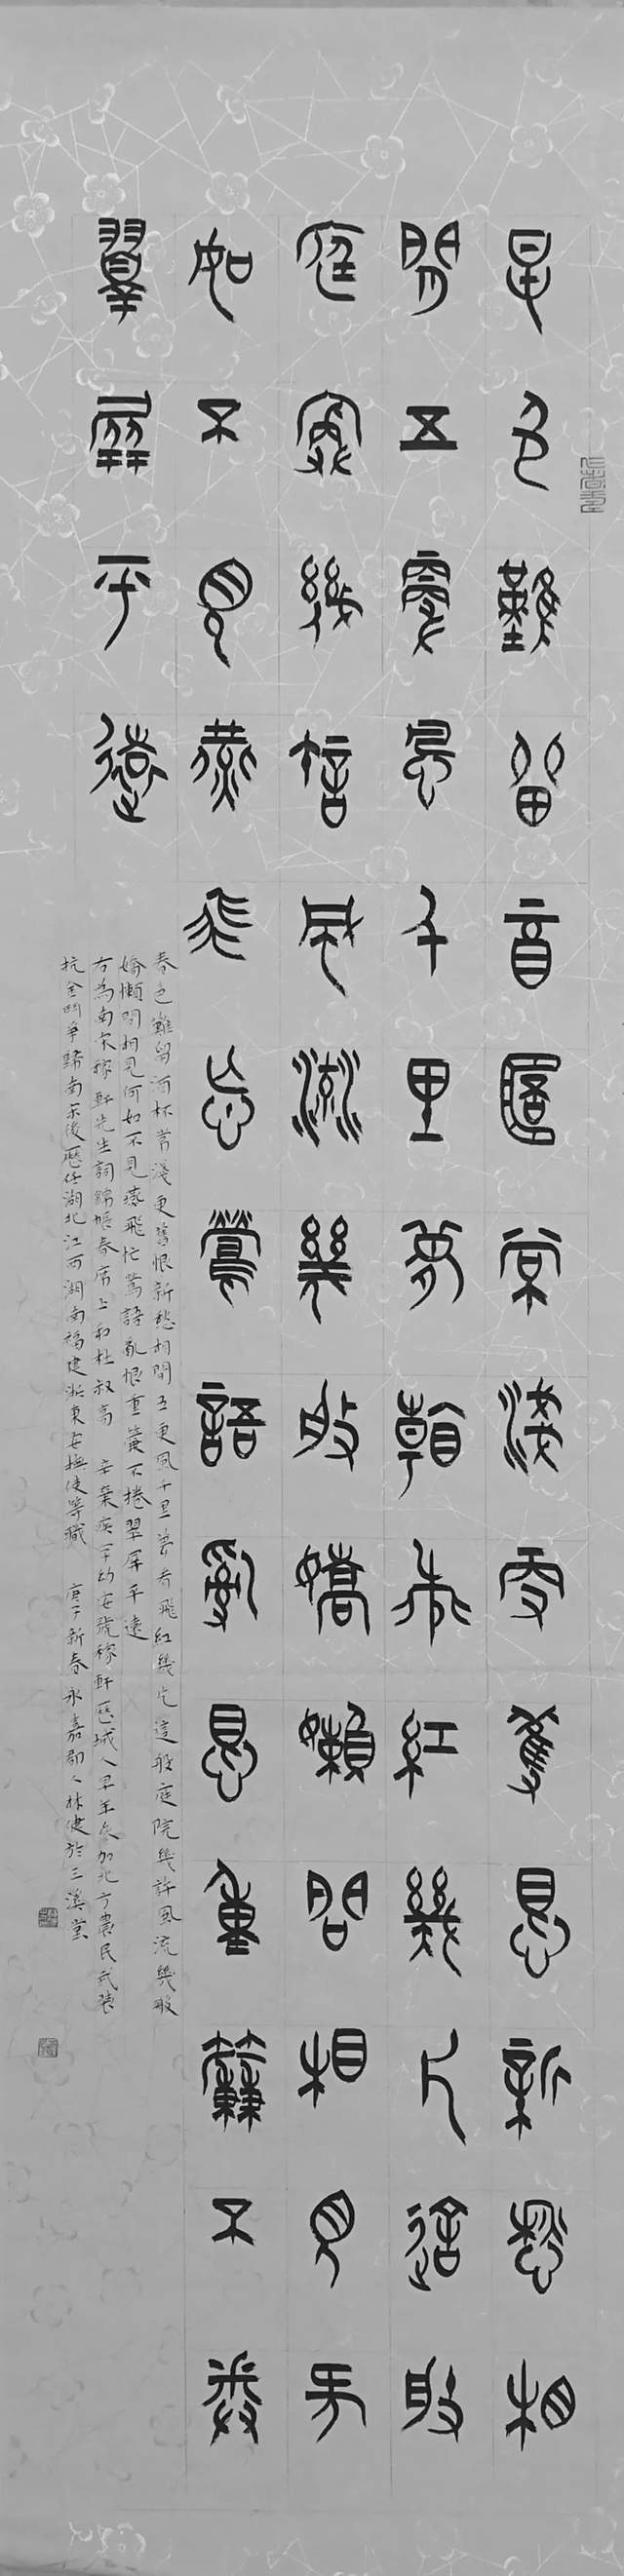 春色難留酒杯常淺更舊恨新愁相
間五更風千里夢看飛紅幾片這般
庭院幾許風流幾般嬌懶問相見何
如不見燕飛忙鶯語亂恨重簾不卷
翠屏平遠
春色難留酒杯常淺更舊恨新愁相間五更風千里夢看飛紅幾片這般庭院幾許風流幾般
嬌懶問相見何如不見燕飛忙鶯語亂恨重簾不捲翠屏平遠
右為南宋稼軒先生詞錦帳春席上和杜叔高 辛棄疾字幼安號稼軒歷城人早年參加北方農民武裝
抗金鬥爭歸南宋後歷任湖北江西湖南福建浙東安撫使等職 庚子新春永嘉郡人林健於三溪堂